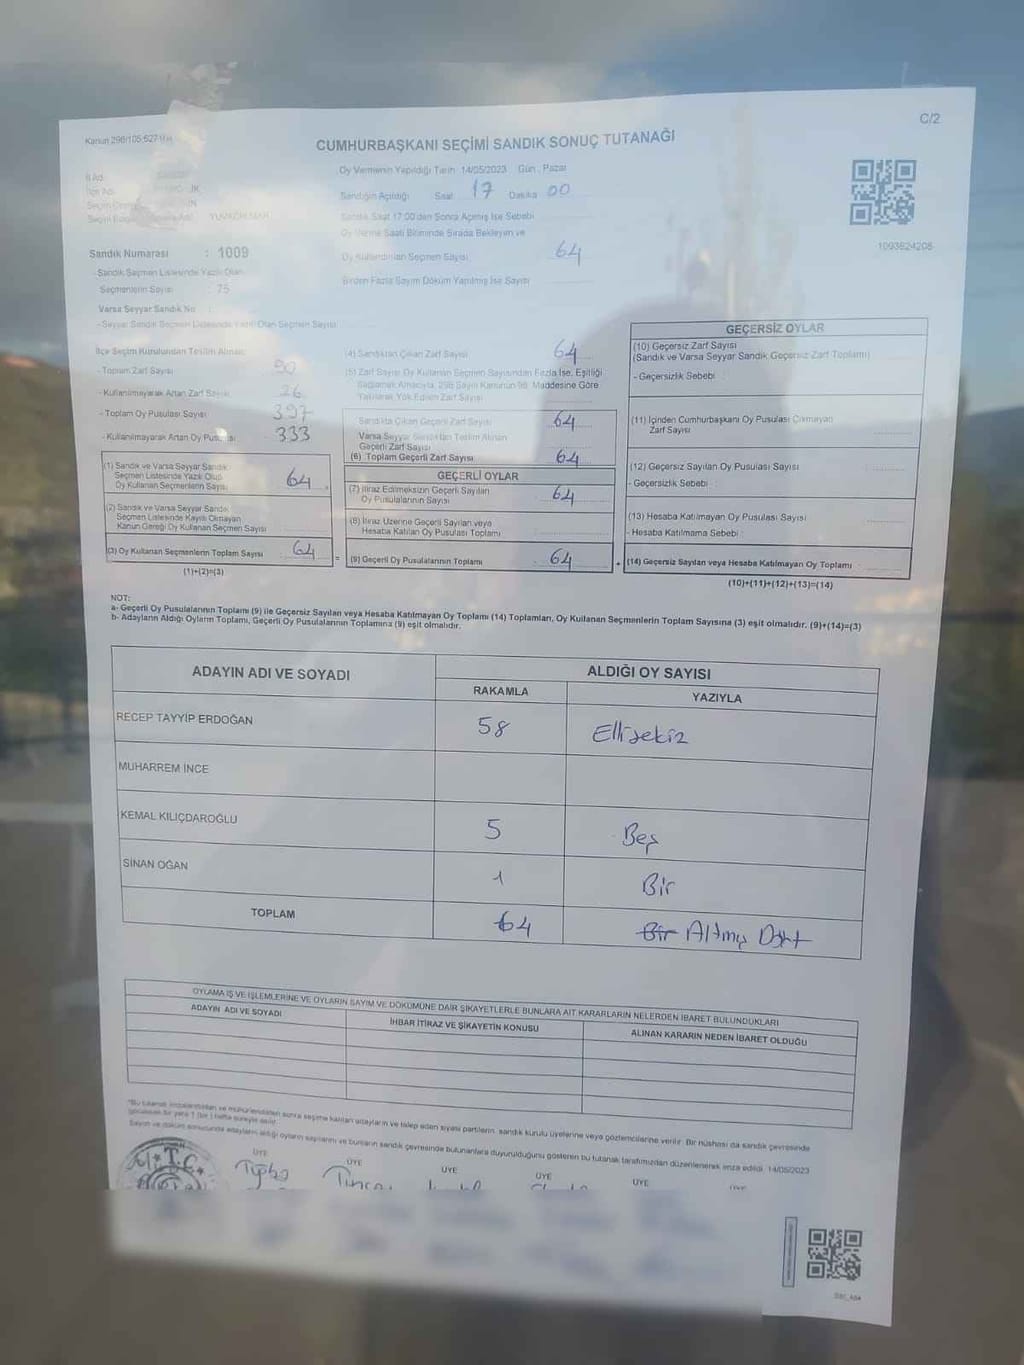 C/2
Kanun 298/105
CUMHURBAŞKANI SEÇİMİ SANDIK SONUÇ TUTANAĞI
Oy Vermenin Yapıldığı Tarih 14/05/2023 Gün : Pazar
İl Adı
İlçe Adı
Sandığın Açıldığı Saat 17 Dakika 00
Sandık Saat 17:00'den Sonra Açılmış İse Sebebi
Oy Verme Saati Bitiminde Sırada Bekleyen ve
Oy Kullandırılan Seçmen Sayısı 64
Birden Fazla Sayım Döküm Yapılmış İse Sayısı
1093624208
Sandık Numarası : 1009
- Sandık Seçmen Listesinde Yazılı Olan
Seçmenlerin Sayısı : 75
Varsa Seyyar Sandık No :
- Seyyar Sandık Seçmen Listesinde Yazılı Olan Seçmen Sayısı
İlçe Seçim Kurulundan Teslim Alınan
- Toplam Zarf Sayısı 90
- Kullanılmayarak Artan Zarf Sayısı 26
- Toplam Oy Pusulası Sayısı 397
- Kullanılmayarak Artan Oy Pusulası 333
(1) Sandık ve Varsa Seyyar Sandık
Seçmen Listesinde Yazılı Olup
Oy Kullanan Seçmenlerin Sayısı 64
(2) Sandık ve Varsa Seyyar Sandık
Seçmen Listesinde Kayıtlı Olmayan
Kanun Gereği Oy Kullanan Seçmen Sayısı
(3) Oy Kullanan Seçmenlerin Toplam Sayısı 64 =
(1)+(2)=(3)
(4) Sandıktan Çıkan Zarf Sayısı 64
(5) Zarf Sayısı Oy Kullanan Seçmen Sayısından Fazla İse, Eşitliği
Sağlamak Amacıyla, 298 Sayılı Kanunun 98. Maddesine Göre
Yakılarak Yok Edilen Zarf Sayısı
Sandıkta Çıkan Geçerli Zarf Sayısı 64
Varsa Seyyar Sandıktan Teslim Alınan
Geçerli Zarf Sayısı
(6) Toplam Geçerli Zarf Sayısı 64
GEÇERLİ OYLAR
(7) İtiraz Edilmeksizin Geçerli Sayılan
Oy Pusulalarının Sayısı 64
(8) İtiraz Üzerine Geçerli Sayılan veya
Hesaba Katılan Oy Pusulaları Toplamı
(9) Geçerli Oy Pusulalarının Toplamı 64 +
GEÇERSİZ OYLAR
(10) Geçersiz Zarf Sayısı
(Sandık ve Varsa Seyyar Sandık Geçersiz Zarf Toplamı)
- Geçersizlik Sebebi :
(11) İçinden Cumhurbaşkanı Oy Pusulası Çıkmayan
Zarf Sayısı
(12) Geçersiz Sayılan Oy Pusulası Sayısı
- Geçersizlik Sebebi :
(13) Hesaba Katılmayan Oy Pusulası Sayısı
- Hesaba Katılmama Sebebi :
(14) Geçersiz Sayılan veya Hesaba Katılmayan Oy Toplamı
(10)+(11)+(12)+(13)=(14)
NOT:
a- Geçerli Oy Pusulalarının Toplamı (9) ile Geçersiz Sayılan veya Hesaba Katılmayan Oy Toplamı (14) Toplamları, Oy Kullanan Seçmenlerin Toplam Sayısına (3) eşit olmalıdır. (9)+(14)=(3)
b- Adayların Aldığı Oyların Toplamı, Geçerli Oy Pusulalarının Toplamına (9) eşit olmalıdır.
ADAYIN ADI VE SOYADI ALDIĞI OY SAYISI
RAKAMLA YAZIYLA
RECEP TAYYİP ERDOĞAN 58 Ellisekiz
MUHARREM İNCE
KEMAL KILIÇDAROĞLU 5 Beş
SİNAN OĞAN 1 Bir
TOPLAM 64 Bir Altmış Dört
OYLAMA İŞ VE İŞLEMLERİNE VE OYLARIN SAYIM VE DÖKÜMÜNE DAİR ŞİKAYETLERLE BUNLARA AİT KARARLARIN NELERDEN İBARET BULUNDUKLARI
ADAYIN ADI VE SOYADI İHBAR İTİRAZ VE ŞİKAYETİN KONUSU ALINAN KARARIN NEDEN İBARET OLDUĞU
"Bu tutanak imzalandıktan ve mühürlendikten sonra seçime katılan adayların ve talep eden siyasi partilerin sandık kurulu üyelerine veya gözlemcilerine verilir. Bir nüshası da sandık çevresinde
görülecek bir yere 1 (bir) hafta süreyle asılır.
Sayım ve döküm sonucunda adayların aldığı oyların sayılarını ve bunların sandık çevresinde bulunanlara duyurulduğunu gösteren bu tutanak tarafımızdan düzenlenerek imza edildi. 14/05/2023
ÜYE ÜYE ÜYE ÜYE ÜYE
T.C.